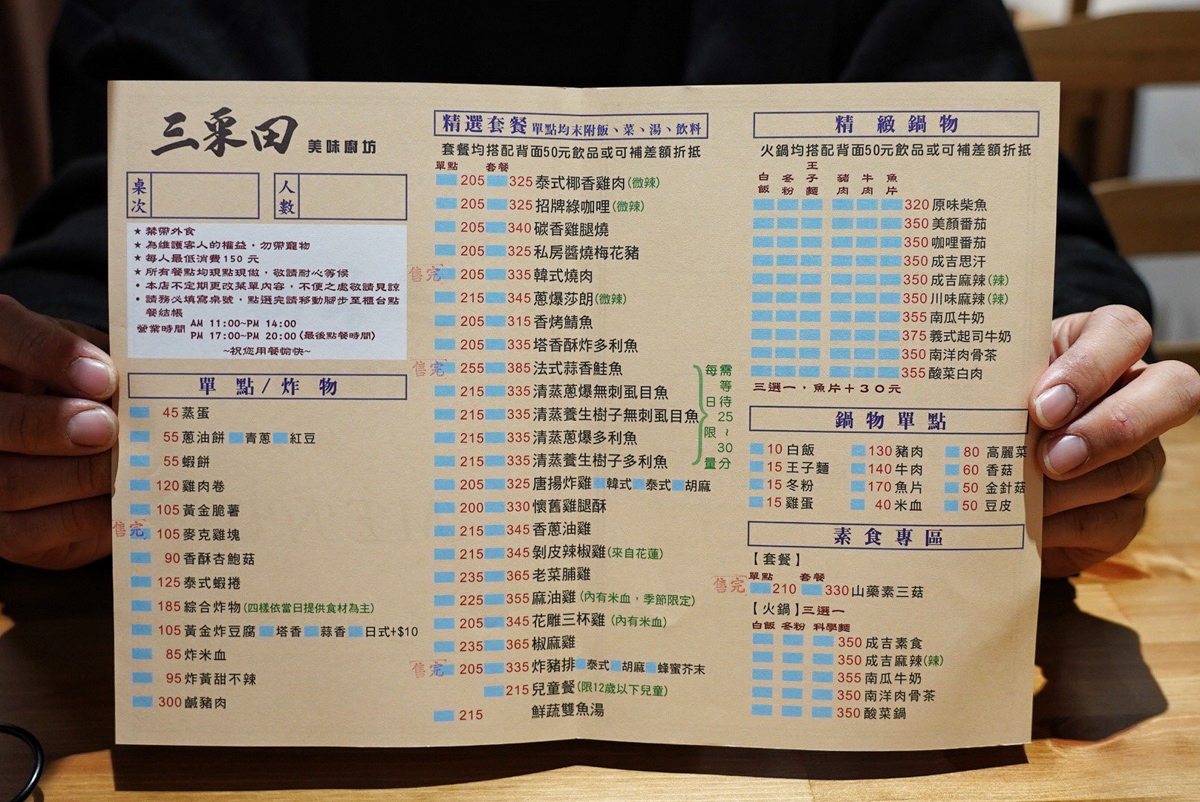 三采田 美味廚坊
桌次
人數
★ 禁帶外食
★ 為維護客人的權益,勿帶寵物
★ 每人最低消費150元
★ 所有餐點均現點現做,敬請耐心等候
• 本店不定期更改菜單內容,不便之處敬請見諒
• 請務必填寫桌號,點選完請移動腳步至櫃台點
餐結帳
營業時間 AM 11:00~PM 14:00
PM 17:00~PM 20:00(最後點餐時間)
~祝您用餐愉快~
單點/炸物
45 蒸蛋
55 蔥油餅 青蔥 紅豆
55 蝦餅
120 雞肉卷
105 黃金脆薯
售完 105 麥克雞塊
90 香酥杏鮑菇
125 泰式蝦捲
185 綜合炸物(四樣依當日提供食材為主)
105 黃金炸豆腐 塔香 蒜香 日式+$10
85 炸米血
95 炸黃甜不辣
300 鹹豬肉
精選套餐 單點均未附飯、菜、湯、飲料
套餐均搭配背面50元飲品或可補差額折抵
單點 套餐
205 325 泰式椰香雞肉(微辣)
205 325 招牌綠咖哩(微辣)
205 340 碳香雞腿燒
205 325 私房醬燒梅花豬
售完 205 335 韓式燒肉
215 345 蔥爆莎朗(微辣)
205 315 香烤鯖魚
205 335 塔香酥炸多利魚
售完 255 385 法式蒜香鮭魚
215 335 清蒸蔥爆無刺虱目魚
215 335 清蒸養生樹子無刺虱目魚
215 335 清蒸蔥爆多利魚
215 335 清蒸養生樹子多利魚
每日限量
需等待25~30分
205 325 唐揚炸雞 韓式 泰式 胡麻
200 330 懷舊雞腿酥
215 345 香蔥油雞
215 345 剝皮辣椒雞(來自花蓮)
235 365 老菜脯雞
225 355 麻油雞(內有米血,季節限定)
205 345 花雕三杯雞(內有米血)
235 365 椒麻雞
售完 205 335 炸豬排 泰式 胡麻 蜂蜜芥末
215 兒童餐(限12歲以下兒童)
215 鮮蔬雙魚湯
精緻鍋物
火鍋均搭配背面50元飲品或可補差額折抵
白飯 冬粉 王子麵 豬肉 牛肉 魚片
320 原味柴魚
350 美顏番茄
350 咖哩番茄
350 成吉思汗
350 成吉麻辣(辣)
350 川味麻辣(辣)
355 南瓜牛奶
375 義式起司牛奶
350 南洋肉骨茶
355 酸菜白肉
三選一,魚片+30元
鍋物單點
10 白飯 130 豬肉 80 高麗菜
15 王子麵 140 牛肉 60 香菇
15 冬粉 170 魚片 50 金針菇
15 雞蛋 40 米血 50 豆皮
素食專區
【套餐】
單點 套餐
售完 210 330 山藥素三菇
【火鍋】三選一
白飯 冬粉 科學麵
350 成吉素食
350 成吉麻辣(辣)
355 南瓜牛奶
350 南洋肉骨茶
350 酸菜鍋